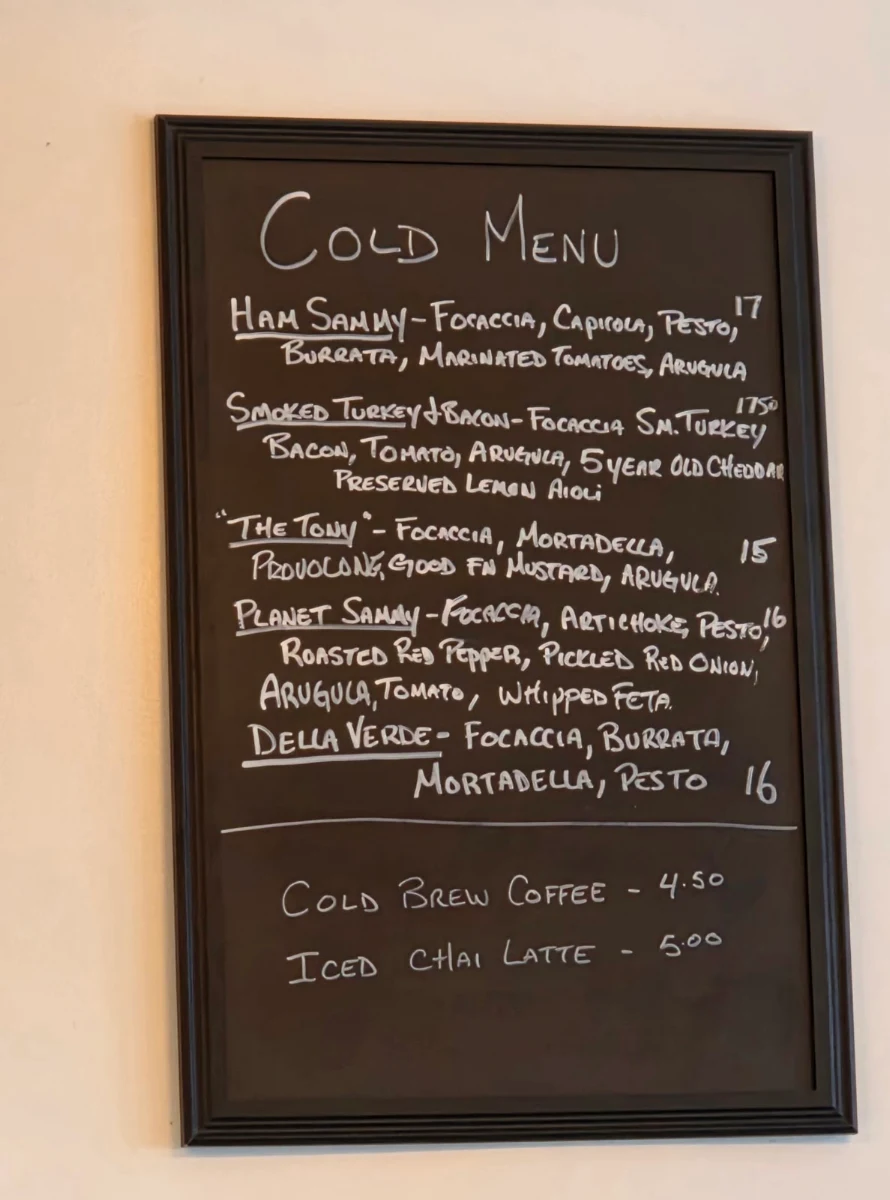 COLD MENU
HAM SAMMY - FOCACCIA, CAPICOLA, PESTO, 17
BURRATA, MARINATED TOMATOES, ARUGULA
SMOKED TURKEY & BACON - FOCACCIA SM. TURKEY 1750
BACON, TOMATO, ARUGULA, 5 YEAR OLD CHEDDAR
PRESERVED LEMON AIOLI
"THE TONY" - FOCACCIA, MORTADELLA, 15
PROVOLONE, GOOD FN MUSTARD, ARUGULA.
PLANET SAMMY - FOCACCIA, ARTICHOKE, PESTO, 16
ROASTED RED PEPPER, PICKLED RED ONION,
ARUGULA, TOMATO, WHIPPED FETA.
DELLA VERDE - FOCACCIA, BURRATA,
MORTADELLA, PESTO 16
COLD BREW COFFEE - 4.50
ICED CHAI LATTE - 5.00